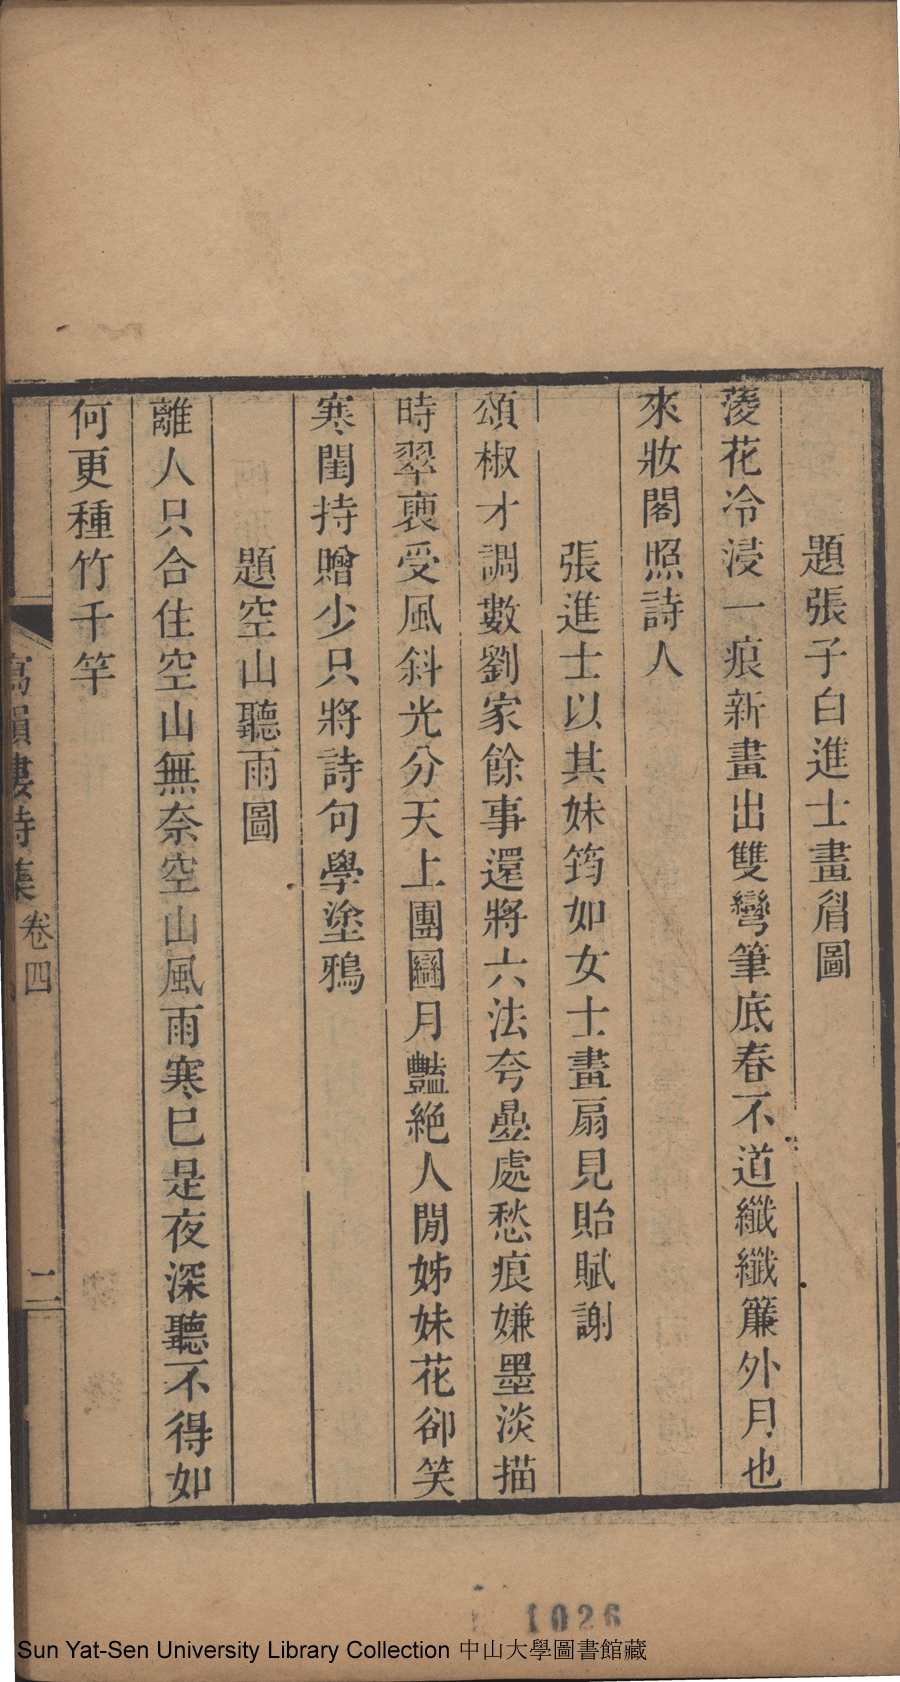 題張子白進士畫眉圖
蔆花冷浸一痕新畫出雙彎筆底春不道纖纖簾外月也
來妝閣照詩人
張進士以其妹筠如女士畫扇見貽賦謝
頌椒才調數劉家餘事還將六法夸疊處愁痕嫌墨淡描
時翠裛受風斜光分天上團圞月豔絶人閒姊妹花卻笑
寒閨持贈少只將詩句學塗鴉
題空山聽雨圖
離人只合住空山無奈空山風雨寒巳是夜深聽不得如
何更種竹千竿
寫韻樓詩集 卷四 二
1026
Sun Yat-Sen University Library Collection 中山大學圖書館藏